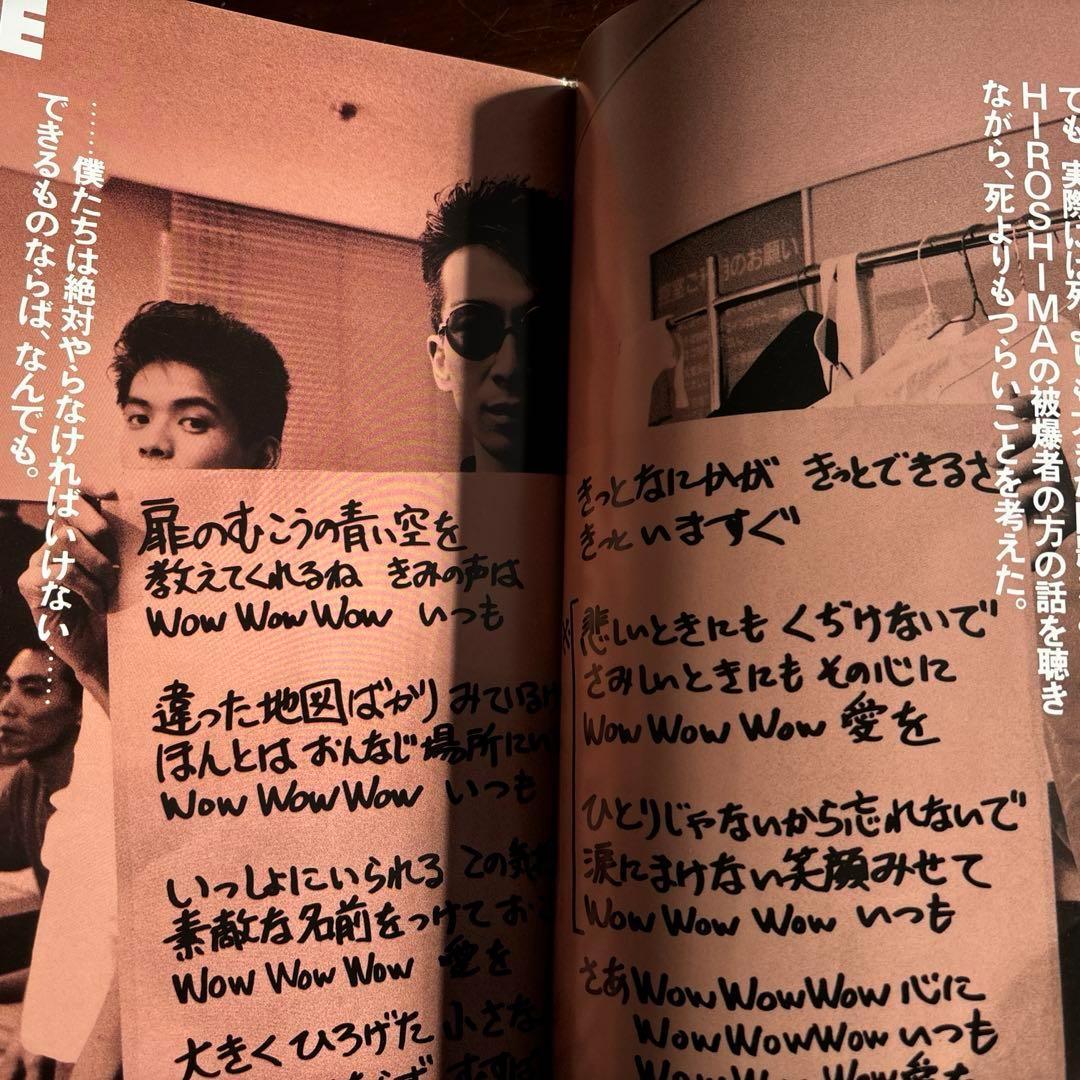 E
……僕たちは絶対やらなければいけない……
できるものならば、なんでも。
扉のむこうの青い空を
教えてくれるね きみの声は
Wow Wow Wow いつも
違った地図ばかり みている
ほんとは おんなじ場所に
Wow Wow Wow いつも
いっしょにいられる この気
素敵な名前をつけて お
Wow Wow Wow 愛を
大きくひろげた 小さな
でも、実際には死
HIROSHIMAの被爆者の方の話を聴き
ながら、死よりもつらいことを考えた。
のお願い
きっとなにかが きっとできるさ
きっと いますぐ
悲しいときにも くぢけないで
さみしいときにも その心に
Wow Wow Wow 愛を
ひとりじゃないから忘れないで
涙にまけない笑顔みせて
Wow Wow Wow いつも
さあ Wow Wow Wow 心に
Wow Wow Wow いつも
Wow Wow Wow 愛を